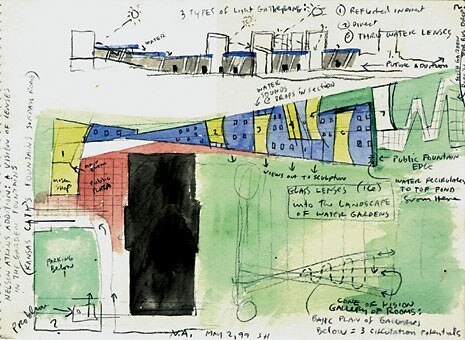 3 TYPES OF LIGHT GATHERING:
① REFLECTED INDIRECT
② DIRECT
③ THRU WATER LENSES
WATER
PUBLIC ADDITION
WATER
SOUNDS
DROPS IN SECTION
1
2
3
PUBLIC FOUNTAIN
EDGE
WATER RECIRCULATES
TO TOP POND
FROM HERE
VIEWS OUT TO SCULPTURE
GLASS LENSES (ICE)
INTO THE LANDSCAPE
OF WATER GARDENS
PUBLIC
PLAZA
NELSON ATKINS ADDITION: A VISION OF LENSES
IN THE GARDEN
(KANSAS CITY)
PARKING
BELOW
PROBLEM
?
CONE OF VISION
GALLERY OF ROOMS:
BASIC PLAN OF GALLERIES
BELOW = 3 CIRCULATION POTENTIALS
N.A. MAY 2, 99 SH